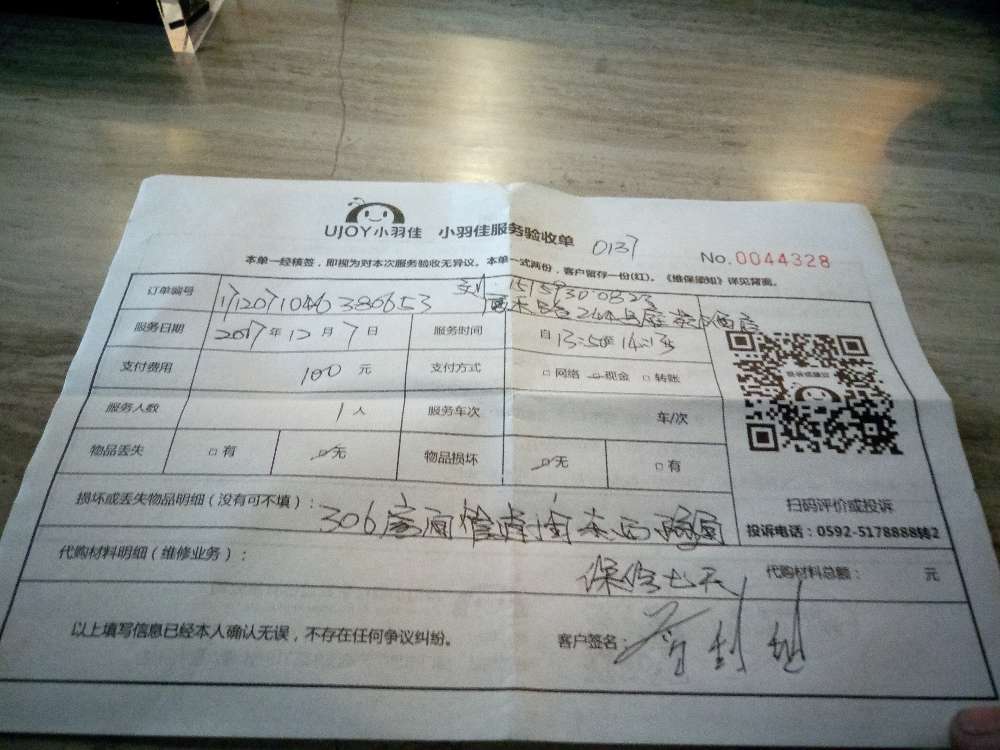 UJOY小羽佳 小羽佳服务验收单 0137
No.0044328
本单一经核签，即视为对本次服务验收无异议。本单一式两份，客户留存一份(红)。《维保须知》详见背面。
订单编号 171207104638653 15159300823
服务日期 2017年12月7日 服务时间 自13:50至14:15
支付费用 100元 支付方式 □网络 ☑现金 □转账
服务人数 1人 服务车次 车/次
物品丢失 □有 ☑无 物品损坏 ☑无 □有
扫码评价或投诉
投诉电话：0592-5178888转2
损坏或丢失物品明细（没有可不填）： 306
代购材料明细（维修业务）： 保修七天 代购材料总额： 元
以上填写信息已经本人确认无误，不存在任何争议纠纷。 客户签名：